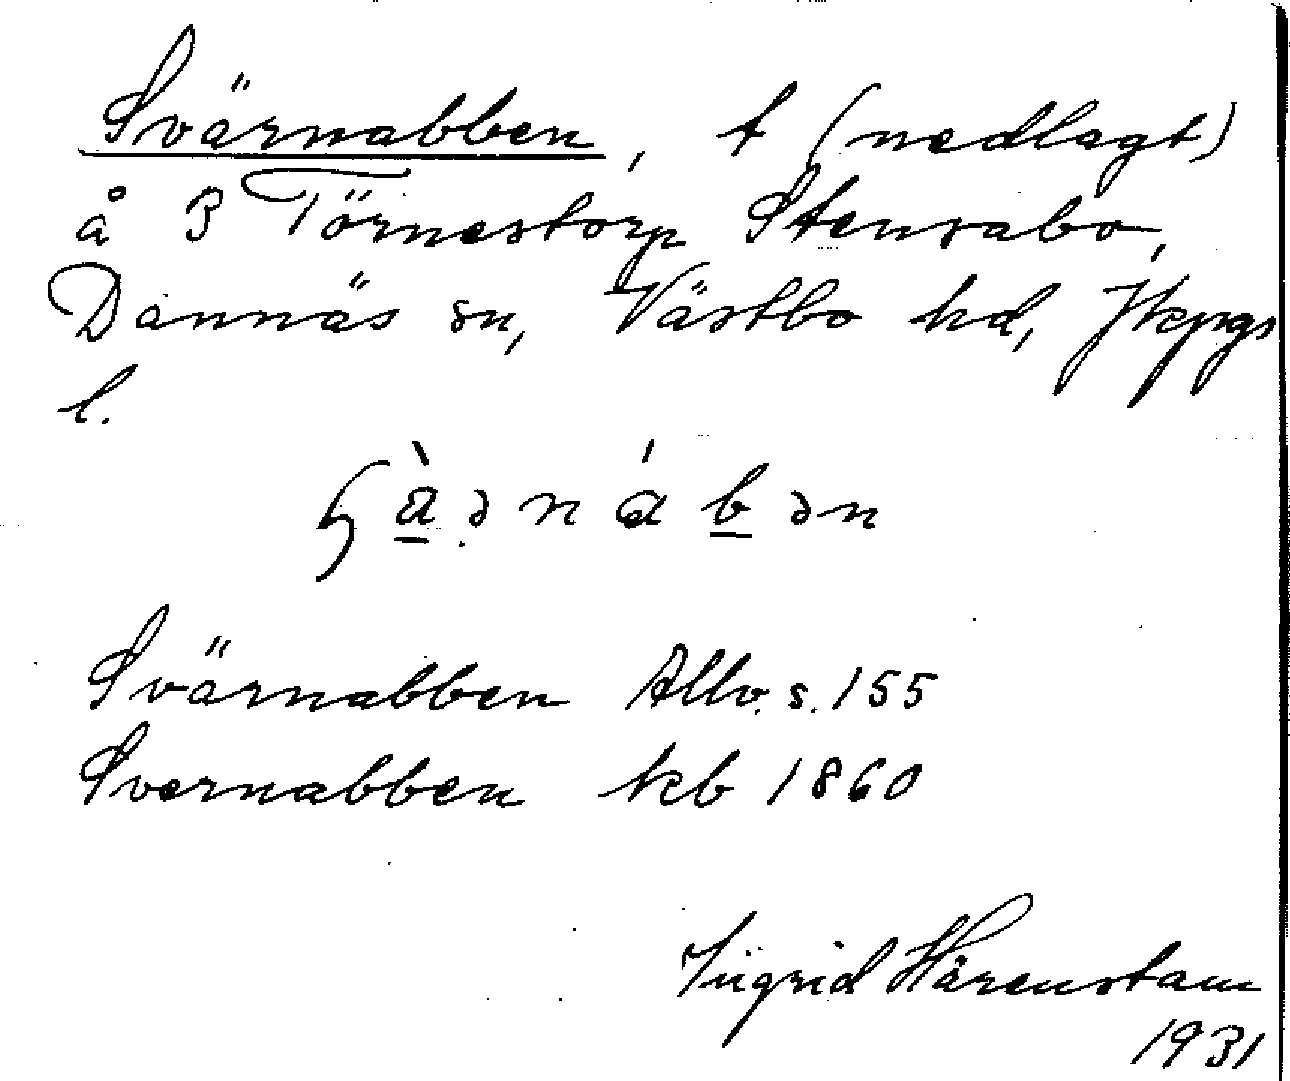 Svärnabben, t (nedlagt)
å 3 Törnestorp Stensabo,
Dannäs sn, Västbo hd, Jkpgs
l.
Svärnabben Allv. s. 155
Svernabben kb 1860
Ingrid Härenstam
1931